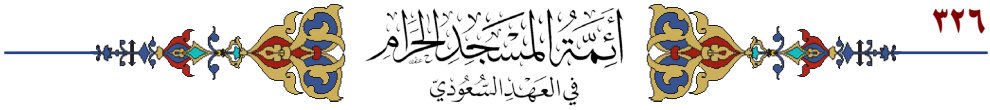 ٣٢٦
أَئِمَّةُ المَسْجِدِ الحَرَامِ
فِي العَهْدِ السُّعُودِيِّ